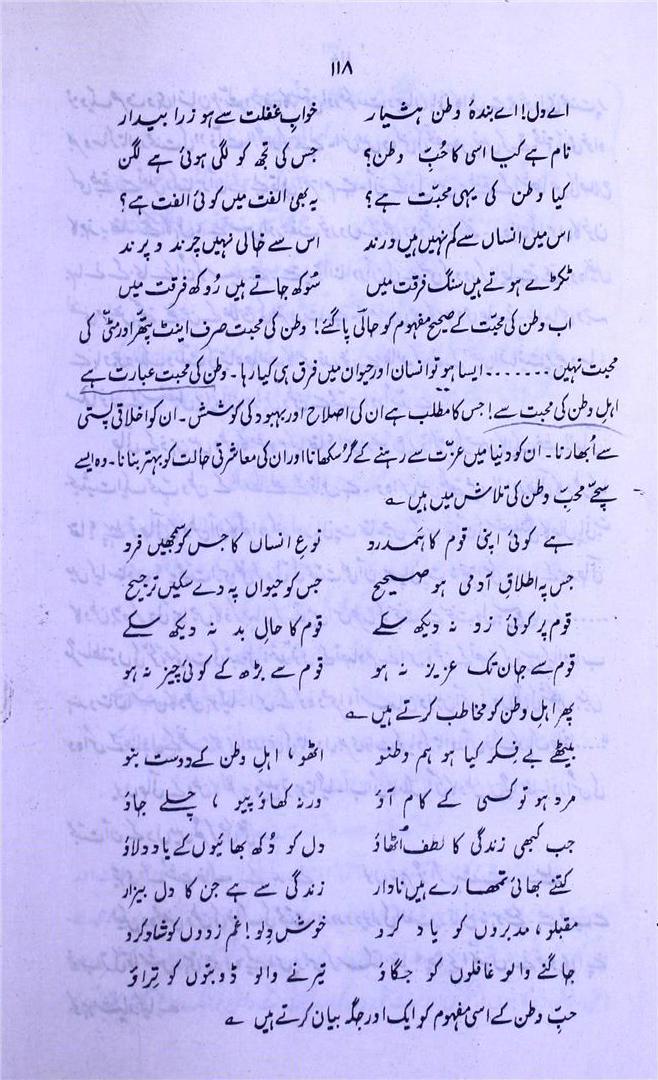 ۱۱۸
اے دل! اے بندۂ وطن ہشیار خوابِ غفلت سے ہو زرا بیدار
نام ہے کیا اسی کا حُبِّ وطن؟ جس کی تجھ کو لگی ہوئی ہے لگن
کیا وطن کی یہی محبّت ہے؟ یہ بھی الفت میں کوئی الفت ہے؟
اس میں انساں سے کم نہیں ہیں درند اس سے خالی نہیں چرند و پرند
ٹکڑے ہوتے ہیں سنگ فرقت میں سُوکھ جاتے ہیں رُوکھ فرقت میں
اب وطن کی محبت کے صحیح مفہوم کو حالی پا گئے! وطن کی محبت صرف اینٹ پتھّر اور مٹّی کی
محبت نہیں ....... ایسا ہو تو انسان اور حیوان میں فرق ہی کیا رہا۔ وطن کی محبت عبارت ہے
اہلِ وطن کی محبت سے! جس کا مطلب ہے ان کی اصلاح اور بہبود کی کوشش۔ ان کو اخلاقی پستی
سے اُبھارنا۔ ان کو دنیا میں عزّت سے رہنے کے گُر سکھانا اور ان کی معاشرتی حالت کو بہتر بنانا۔ وہ ایسے
سچّے محبِّ وطن کی تلاش میں ہیں ؎
ہے کوئی اپنی قوم کا ہمدرد نوعِ انساں کا جس کو سمجھیں فرد
جس پہ اطلاقِ آدمی ہو صحیح جس کو حیواں پہ دے سکیں ترجیح
قوم پر کوئی زد نہ دیکھ سکے قوم کا حالِ بد نہ دیکھ سکے
قوم سے جان تک عزیز نہ ہو قوم سے بڑھ کے کوئی چیز نہ ہو
پھر اہلِ وطن کو مخاطب کرتے ہیں ؎
بیٹھے بے فکر کیا ہو ہم وطنو اٹھو، اہلِ وطن کے دوست بنو
مرد ہو تو کسی کے کام آؤ ورنہ کھاؤ پیو ، چلے جاؤ
جب کبھی زندگی کا لطف اُٹھاؤ دل کو دُکھ بھائیوں کے یاد دلاؤ
کتنے بھائی تمھارے ہیں نادار زندگی سے ہے جن کا دل بیزار
مقبلو، مدبروں کو یاد کرو خوش دِلو! غم زدوں کو شاد کرو
جاگنے والو غافلوں کو جگاؤ تیرنے والو ڈوبتوں کو تِراؤ
حبِّ وطن کے اسی مفہوم کو ایک اور جگہ بیان کرتے ہیں ؎